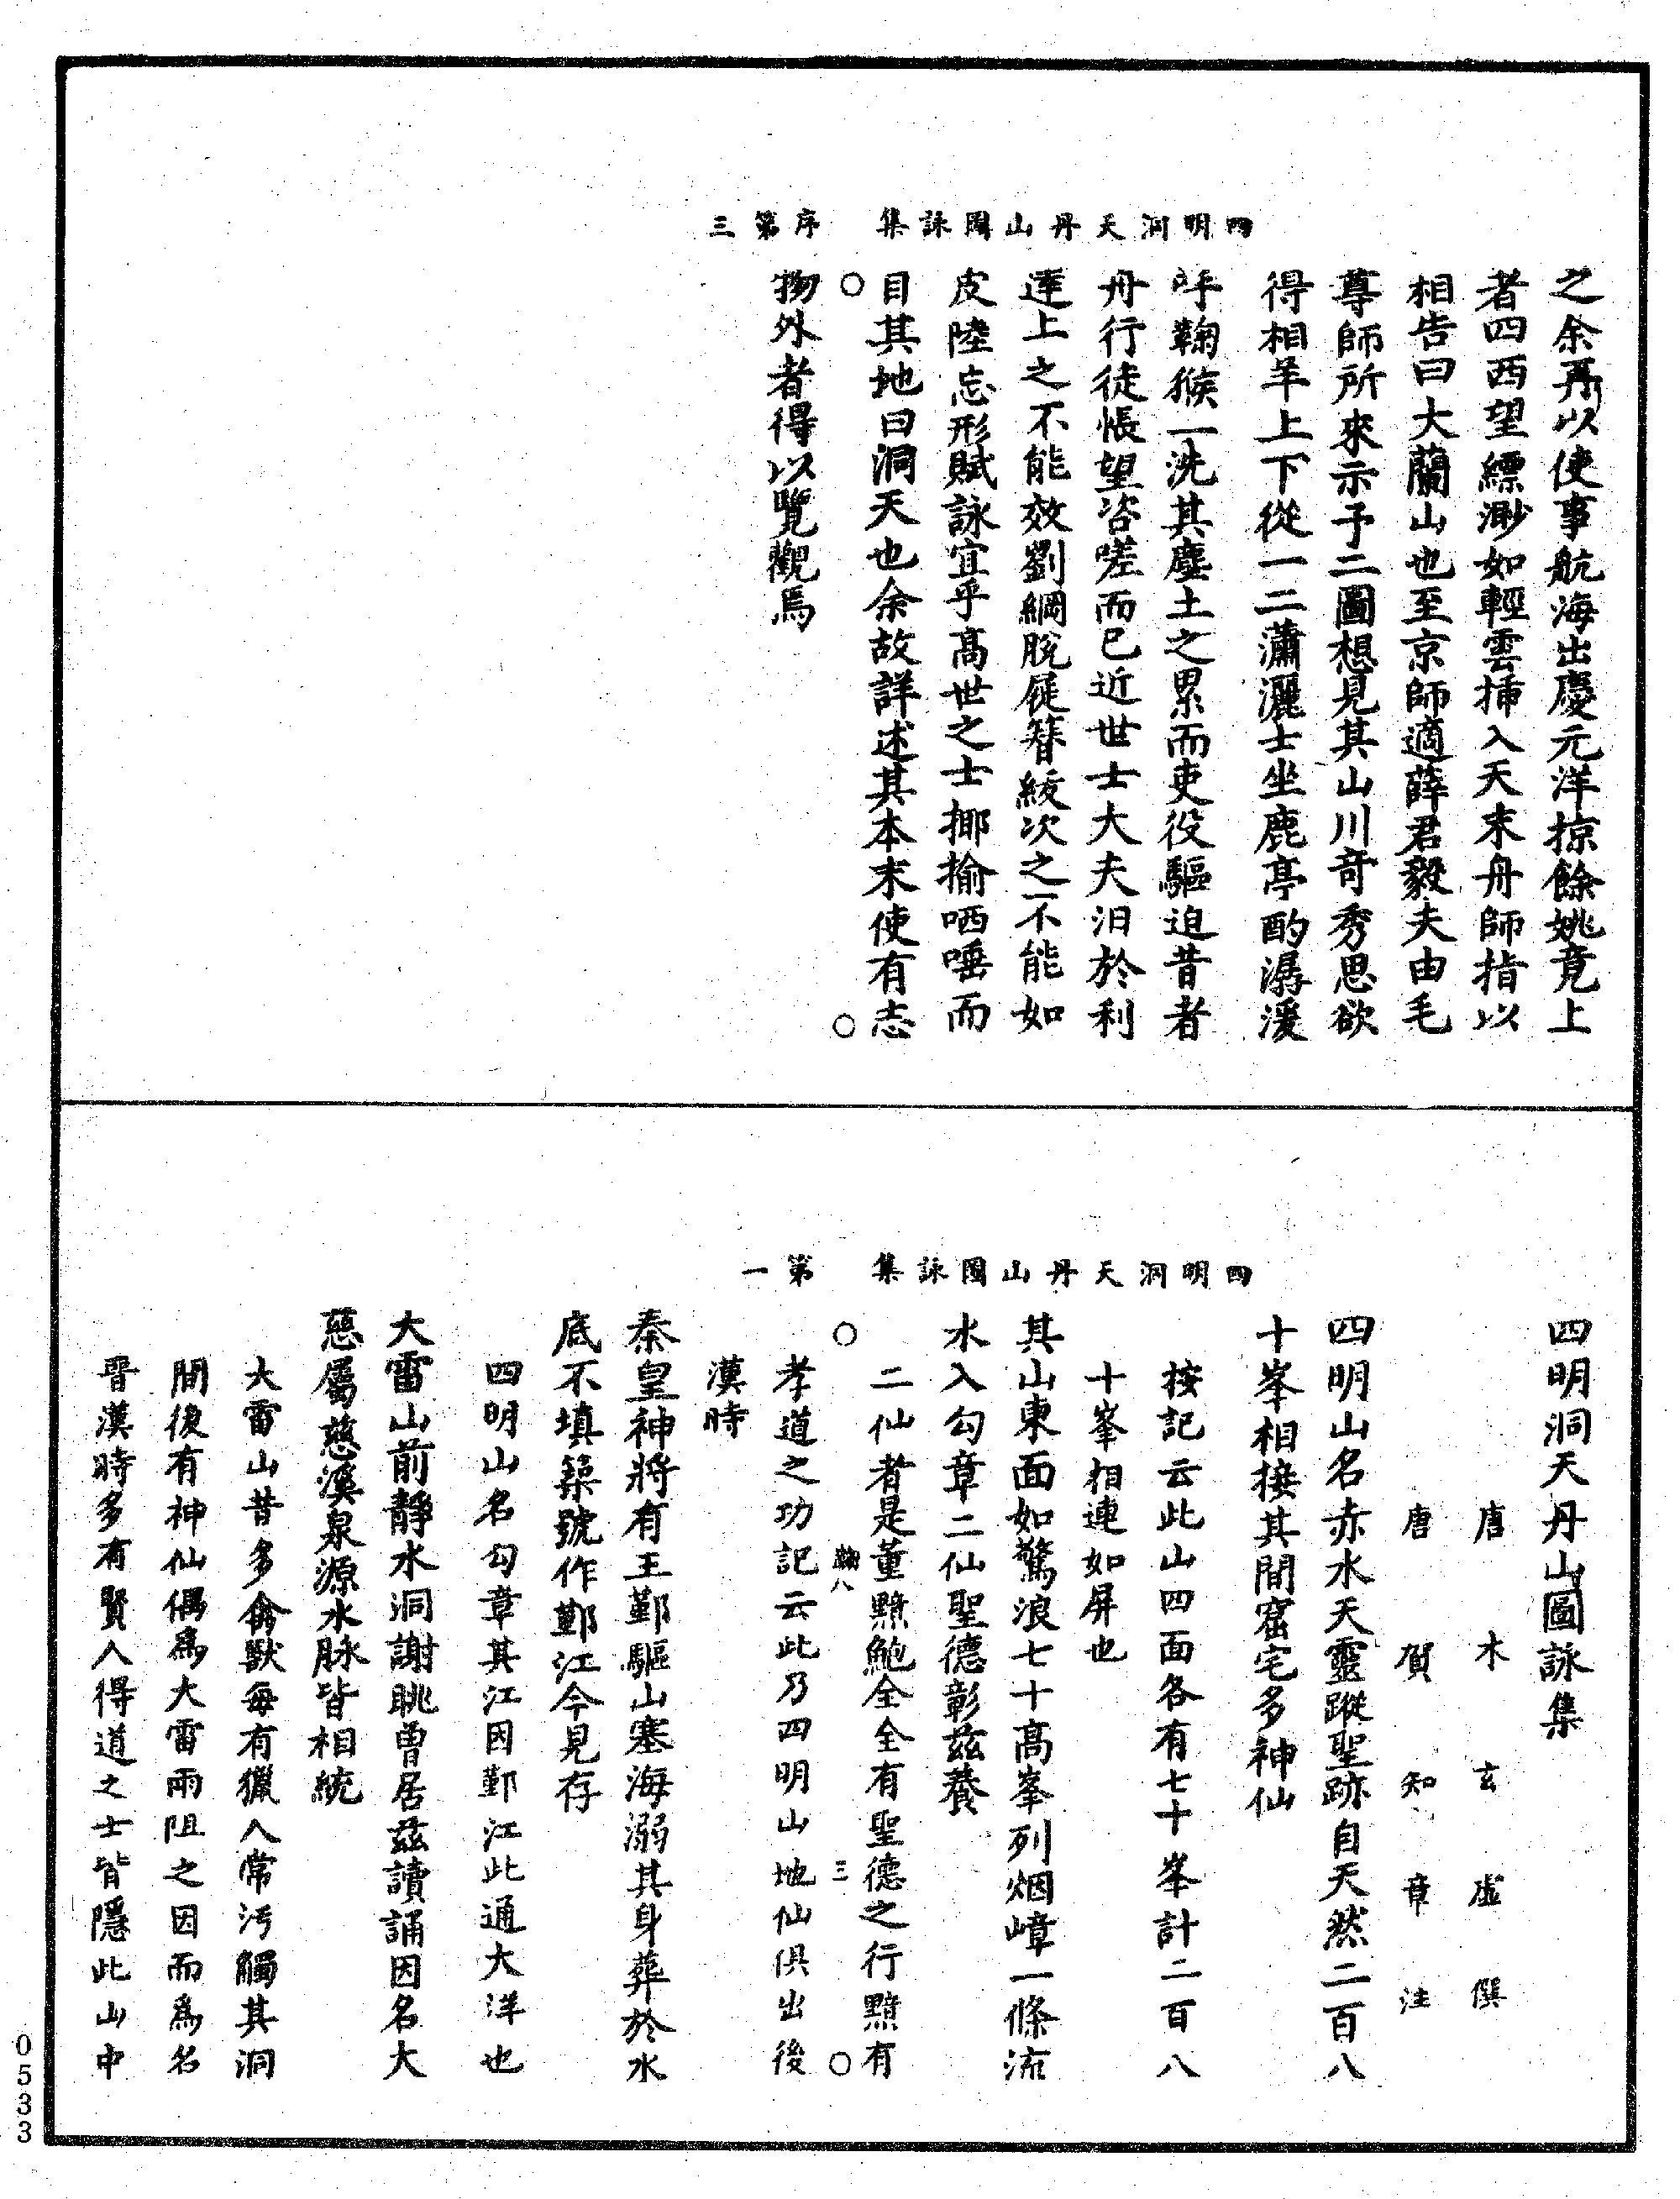 四明洞天丹山圖詠集　序第三
之余再以使事航海出慶元洋掠餘姚竟上
者四西望縹渺如輕雲插入天末舟師指以
相告曰大蘭山也至京師適薛君毅夫由毛
尊師所來示予二圖想見其山川奇秀思欲
得相羊上下從一二瀟灑士坐鹿亭酌潺湲
呼鞠猴一洗其塵土之累而吏役驅迫昔者
舟行徒悵望咨嗟而已近世士大夫汨於利
達上之不能效劉綱脫屣簪紱次之不能如
皮陸忘形賦詠宜乎高世之士揶揄哂唾而
目其地曰洞天也余故詳述其本末使有志
物外者得以覽觀焉
四明洞天丹山圖詠集　第一
四明洞天丹山圖詠集
唐木玄虛撰
唐賀知章注
四明山名赤水天靈蹤聖跡自天然二百八
十峯相接其間窟宅多神仙
按記云此山四面各有七十峯計二百八
十峯相連如屏也
其山東面如驚浪七十高峯列烟嶂一條流
水入勾章二仙聖德彰茲養
二仙者是董黯鮑全全有聖德之行黯有
鞠八　三
孝道之功記云此乃四明山地仙俱出後
漢時
秦皇神將有王鄞驅山塞海溺其身葬於水
底不填築號作鄞江今見存
四明山名勾章其江因鄞江此通大洋也
大雷山前靜水洞謝眺曾居茲讀誦因名大
慈屬慈溪泉源水脉皆相統
大雷山昔多禽獸每有獵人常污觸其洞
間後有神仙偶為大雷雨阻之因而為名
晉漢時多有賢人得道之士皆隱此山中
0533